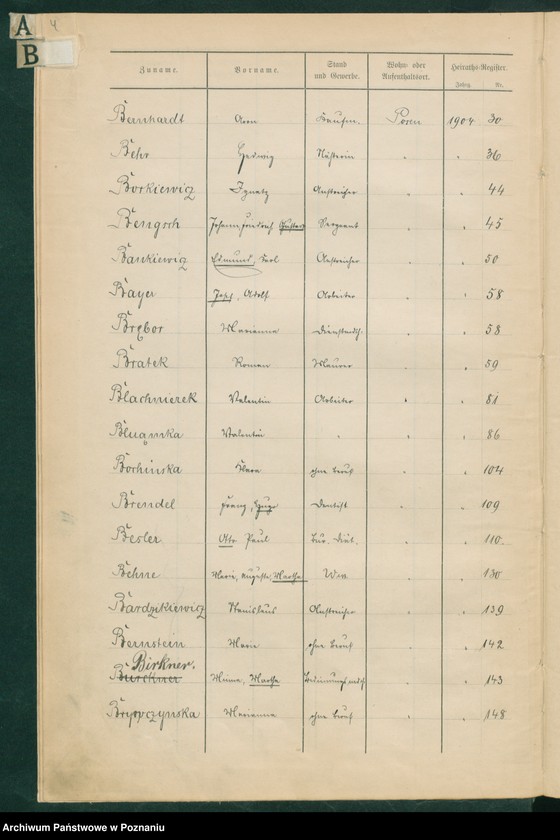 A
B
4
Zuname. Vorname. Stand und Gewerbe. Wohn- oder Aufenthaltsort. Heiraths-Register.
Jahrg. Nr.
Bernhardt Aron Kaufm. Posen 1904 30
Behr Hedwig Näherin " " 36
Borkiewicz Ignatz Anstreicher " " 44
Bengsch Johann Friedrich Gustav Sergeant " " 45
Bankiewicz Edmund, Karl Anstreicher " " 50
Bayer Josef, Adolf Arbeiter " " 58
Brębor Marianna Dienstmdch. " " 58
Bratek Roman Maurer " " 59
Blachnierek Valentin Arbeiter " " 81
Valentin " " " 86
Bochińska Klara ohne Beruf " " 104
Brendel Franz, Hugo Dentist " " 109
Besler Otto Paul Bür. Diät. " " 110.
Behne Marie, Auguste, Martha Ww. " " 130
Bardzikiewicz Stanislaus Anstreicher " " 139
Bernstein Marie ohne Beruf " " 142
Birkner.
Burckner Minna, Martha " " 143
Marianna ohne Beruf " " 148
Archiwum Państwowe w Poznaniu